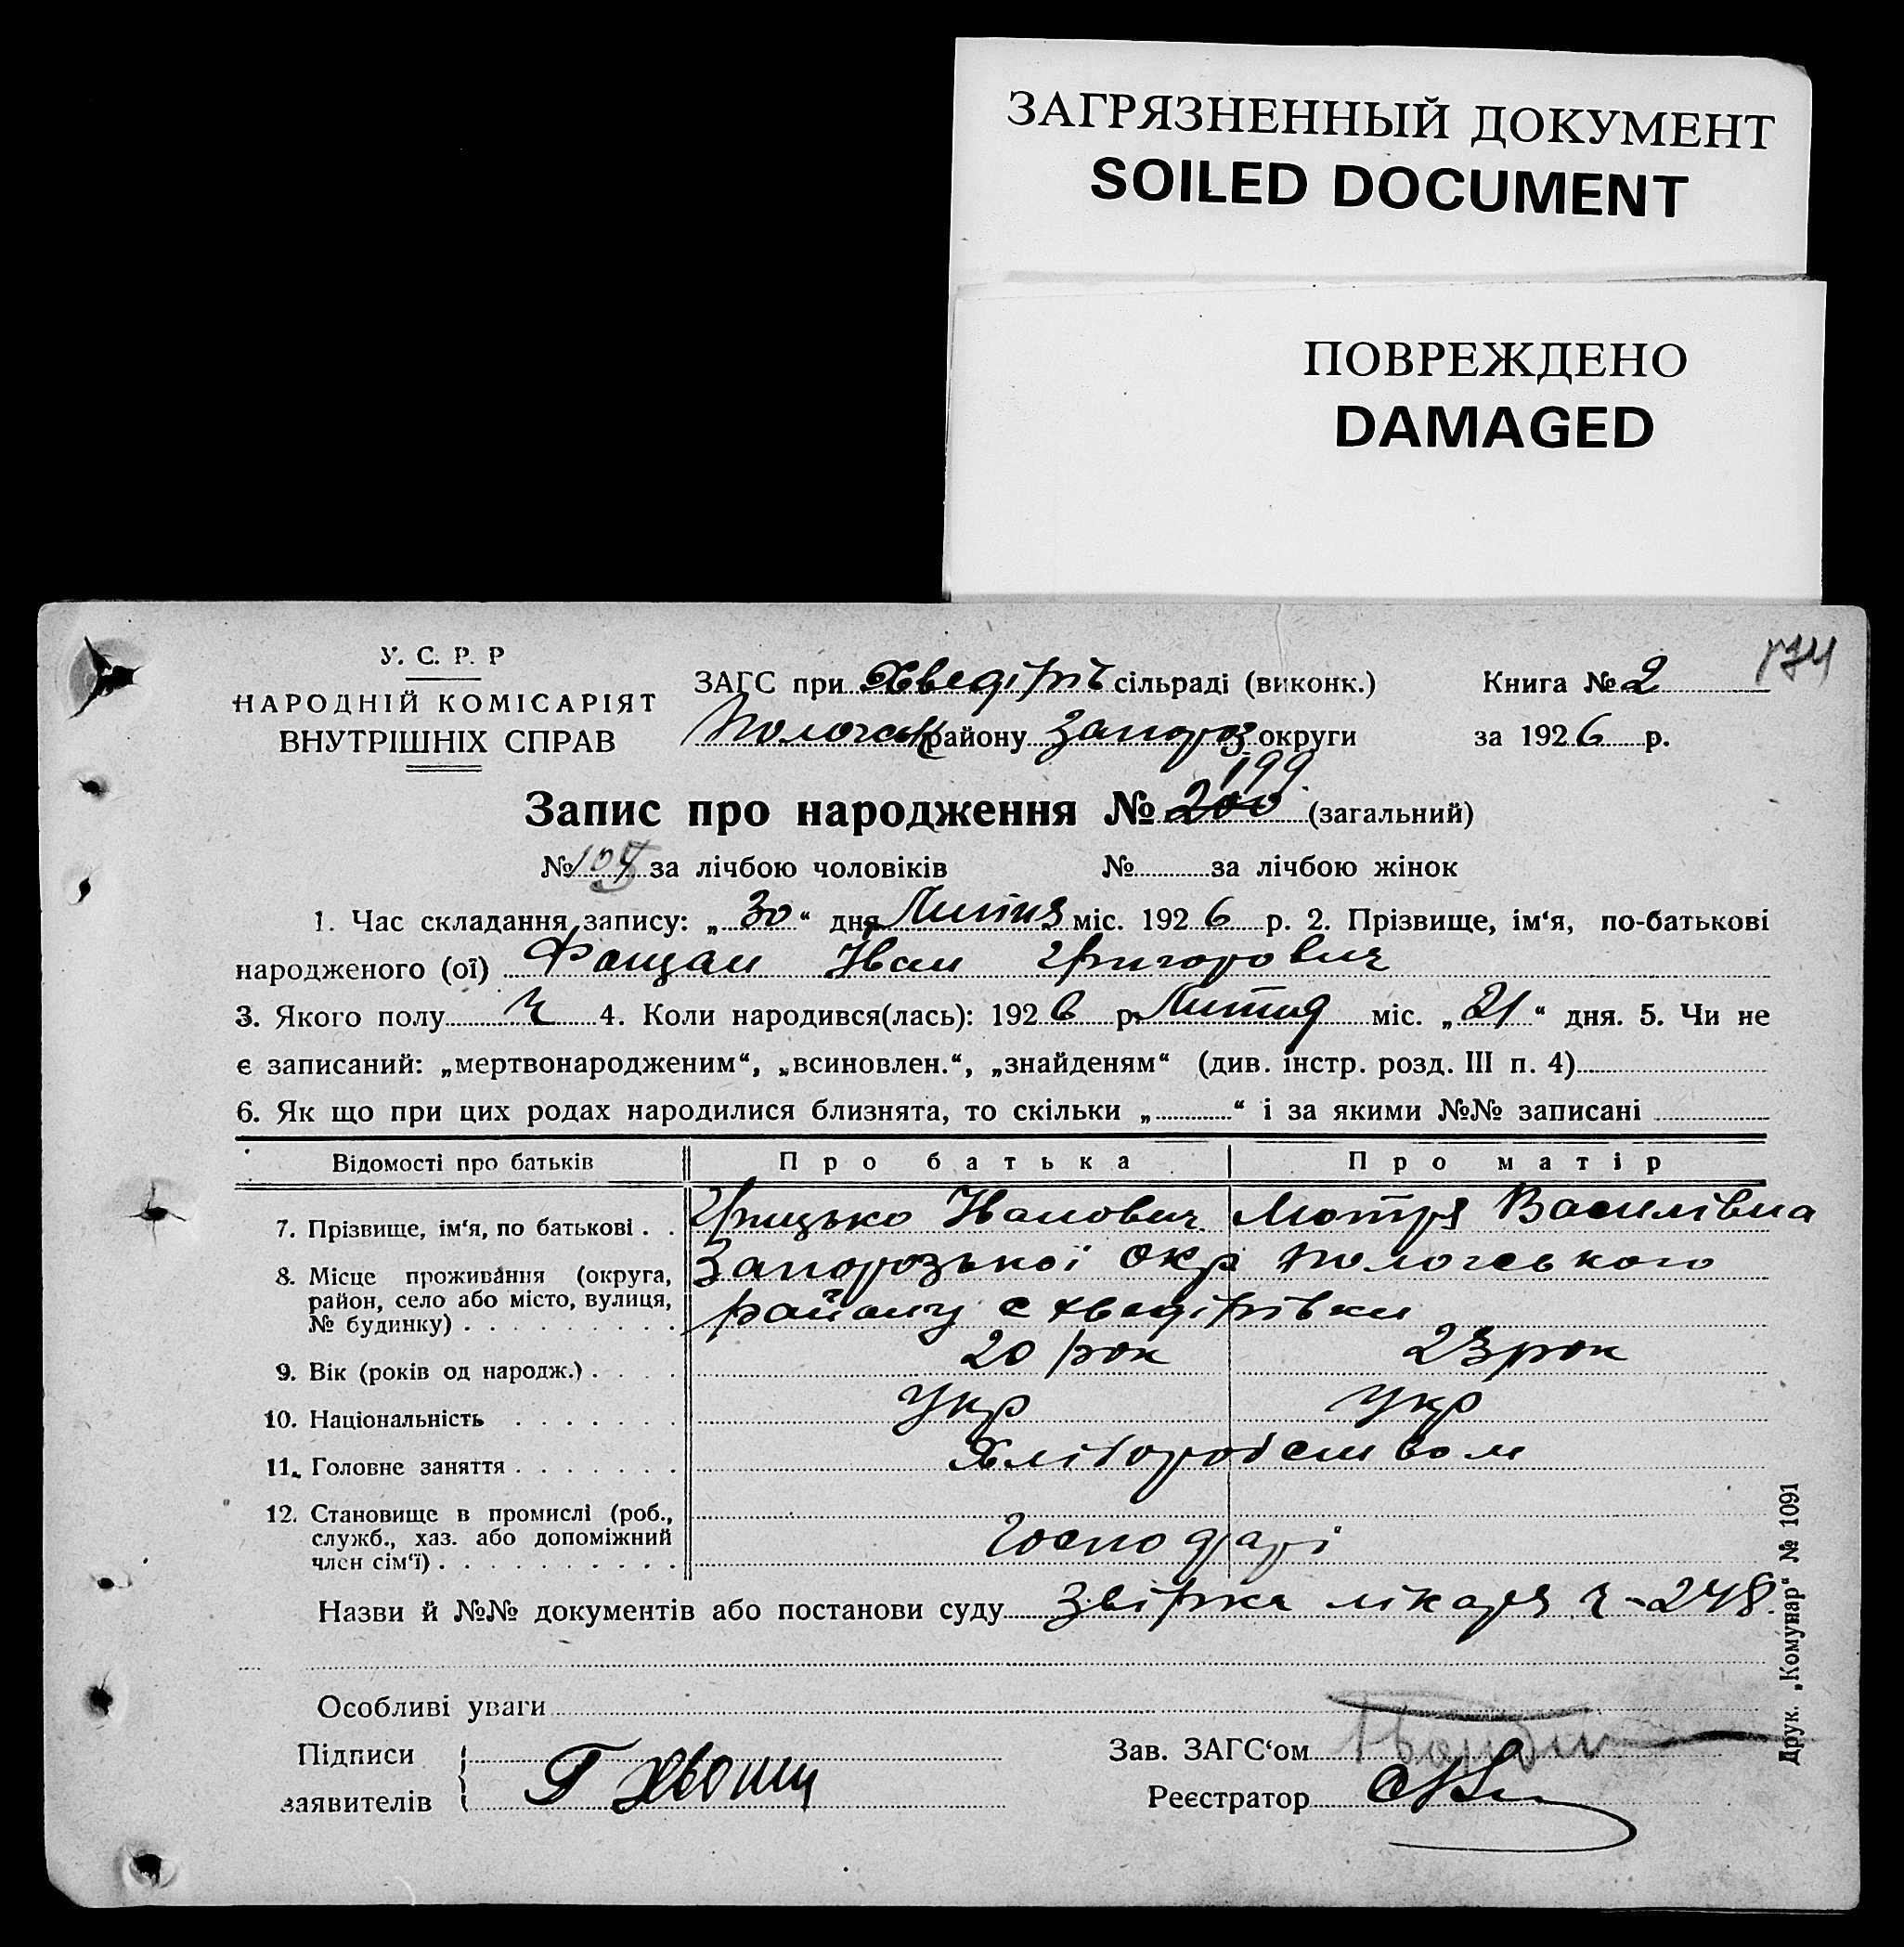 ЗАГРЯЗНЕННЫЙ ДОКУМЕНТ
SOILED DOCUMENT
ПОВРЕЖДЕНО
DAMAGED
У. С. Р. Р
НАРОДНІЙ КОМІСАРІЯТ
ВНУТРІШНІХ СПРАВ
ЗАГС при Хведірівс сільраді (виконк.) Книга № 2
Пологськ району Запороз округи за 1926 р.
199
Запис про народження № 200 (загальний)
№ за лічбою чоловіків № за лічбою жінок
1. Час складання запису: „30“ дня Липня міс. 1926 р. 2. Прізвище, ім‘я, по-батькові
народженого (ої) Фащан Иван Григорович
3. Якого полу Ч 4. Коли народився(лась): 1926 р. Липня міс. „21“ дня. 5. Чи не
є записаний: „мертвонародженим“, „всиновлен.“, „знайденям“ (див. інстр. розд. III п. 4)
6. Як що при цих родах народилися близнята, то скільки „ “ і за якими №№ записані
Відомості про батьків Про батька Про матір
7. Прізвище, ім‘я, по батькові . . Грицько Иванович Мотря Василівна
8. Місце проживання (округа, Запорозької окр Пологського
район, село або місто, вулиця, району с Хведірівки
№ будинку)
9. Вік (років од народж.) . . . . 20 рок 23 рок
10. Національність Укр Укр
11. Головне заняття Хліборобством
12. Становище в промислі (роб.,
служб., хаз. або допоміжний Господарі
член сім‘ї)
Назви й №№ документів або постанови суду Звірка лікаря ч-248.
Особливі уваги
Підписи Зав. ЗАГС‘ом
заявителів Г Реєстратор
Друк. „Комунар“ № 1091